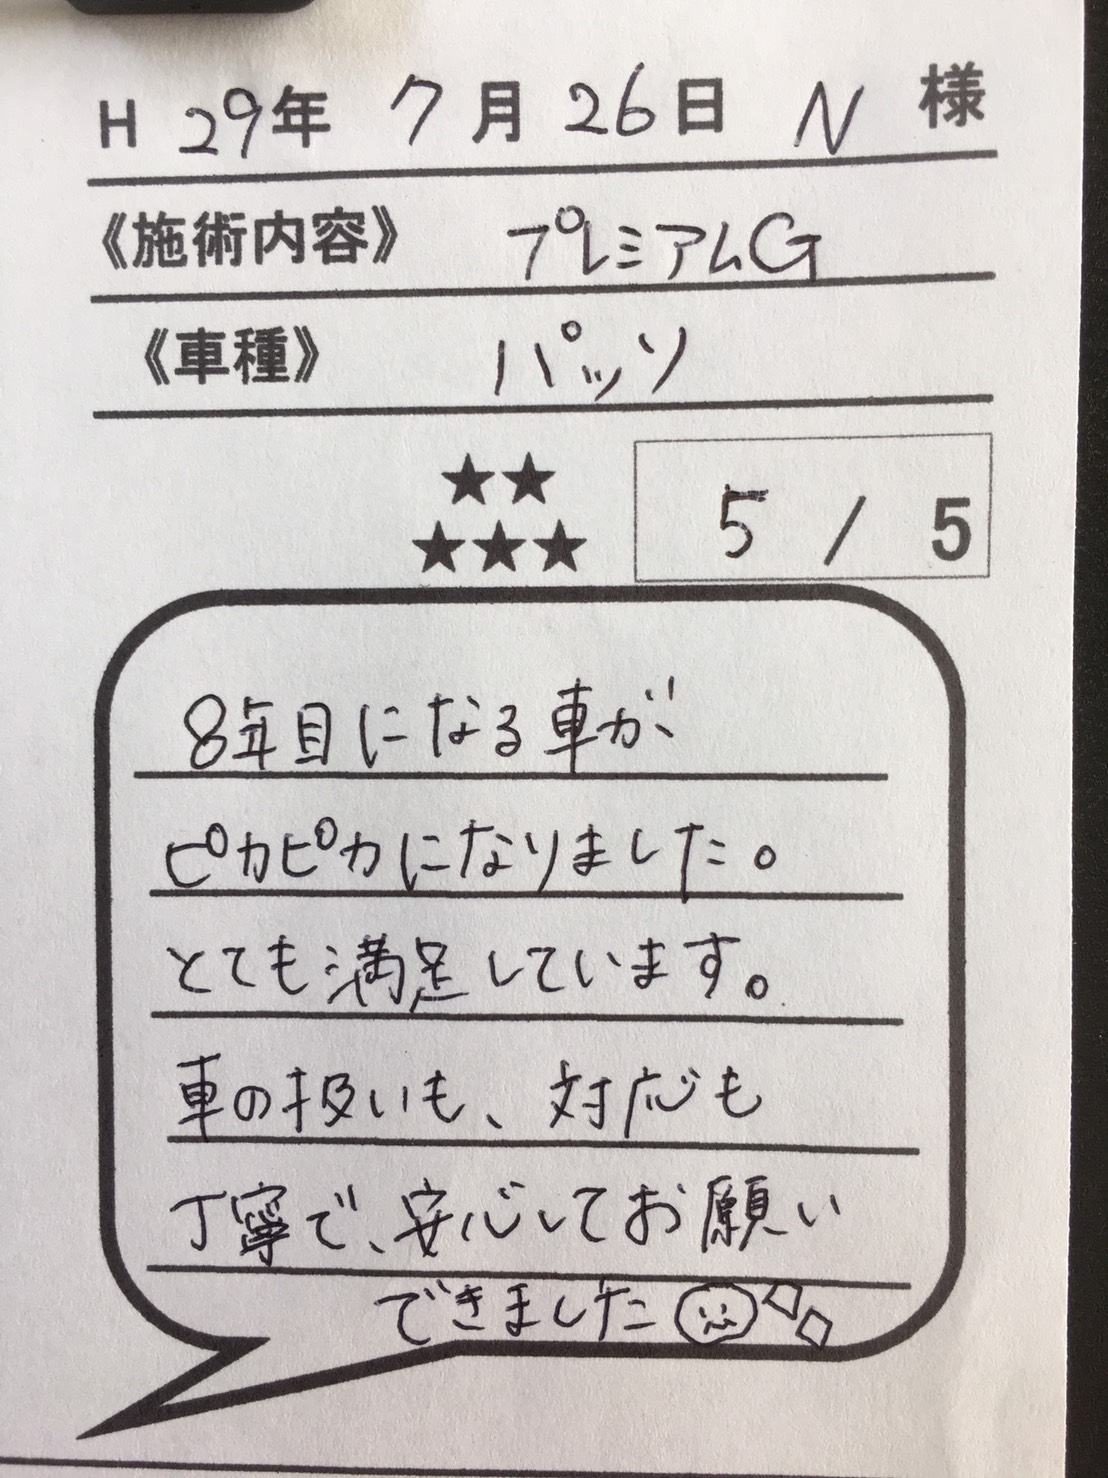 H 29年 7月 26日 N 様
《施術内容》 プレミアムG
《車種》 パッソ
★★
★★★ 5 / 5
8年目になる車が、
ピカピカになりました。
とても満足しています。
車の扱いも、対応も
丁寧で、安心してお願い
できました